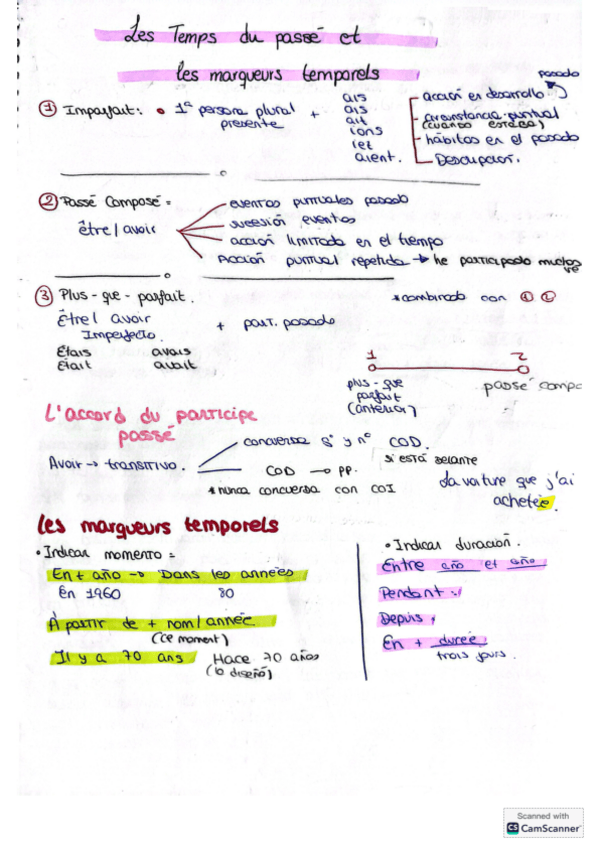 Les Temps du passé et
les marqueurs temporels
① Imparfait: • 1ª persona plural presente +
ais
ais
ait
ions
iez
aient.
pasado
acción en desarrollo
circunstancia puntual
(cuando estaba)
hábitos en el pasado
Descripción.
② Passé Composé =
être/avoir
eventos puntuales pasado
sucesión eventos
acción limitada en el tiempo
Acción puntual repetida → he participado muchas
③ Plus-que-parfait.
*combinado con ① ②
Être/avoir
Imperfecto.
+ part. pasado
Étais avais
Était avait
1 2
plus-que
parfait
(anterior)
passé compo
L'accord du participe
passé
Avoir → transitivo.
concuerda gº y nº COD.
si está delante
COD → PP.
*nunca concuerda con COI
La voiture que j'ai
achetée.
les marqueurs temporels
• Indicar momento =
En + año → Dans les années
En 1960 80
À partir de + nom/année.
(ce moment)
Il y a 70 ans Hace 70 años
(lo diseñó)
• Indicar duración.
Entre año et año
Pendant.
Depuis,
En + durée
trois jours.
Scanned with
CS CamScanner